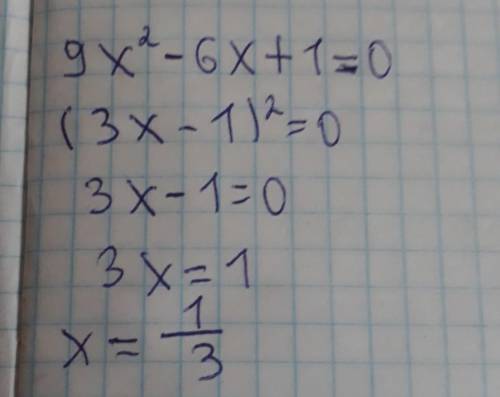 9x² - 6x + 1 = 0
(3x - 1)² = 0
3x - 1 = 0
3x = 1
x = 1/3